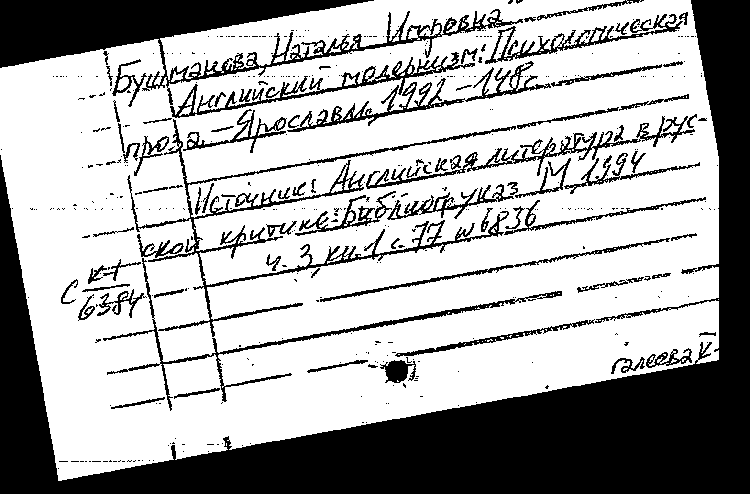 Бушманова, Наталья Игоревна
Английский модернизм: Психологическая
проза. – Ярославль, 1992 – 148с
Источник: Английская литература в рус-
ской критике: Библиогр. указ М, 1994
ч. 3, кн. 1, с. 77, № 6836
С К-1
6384
Галеева V